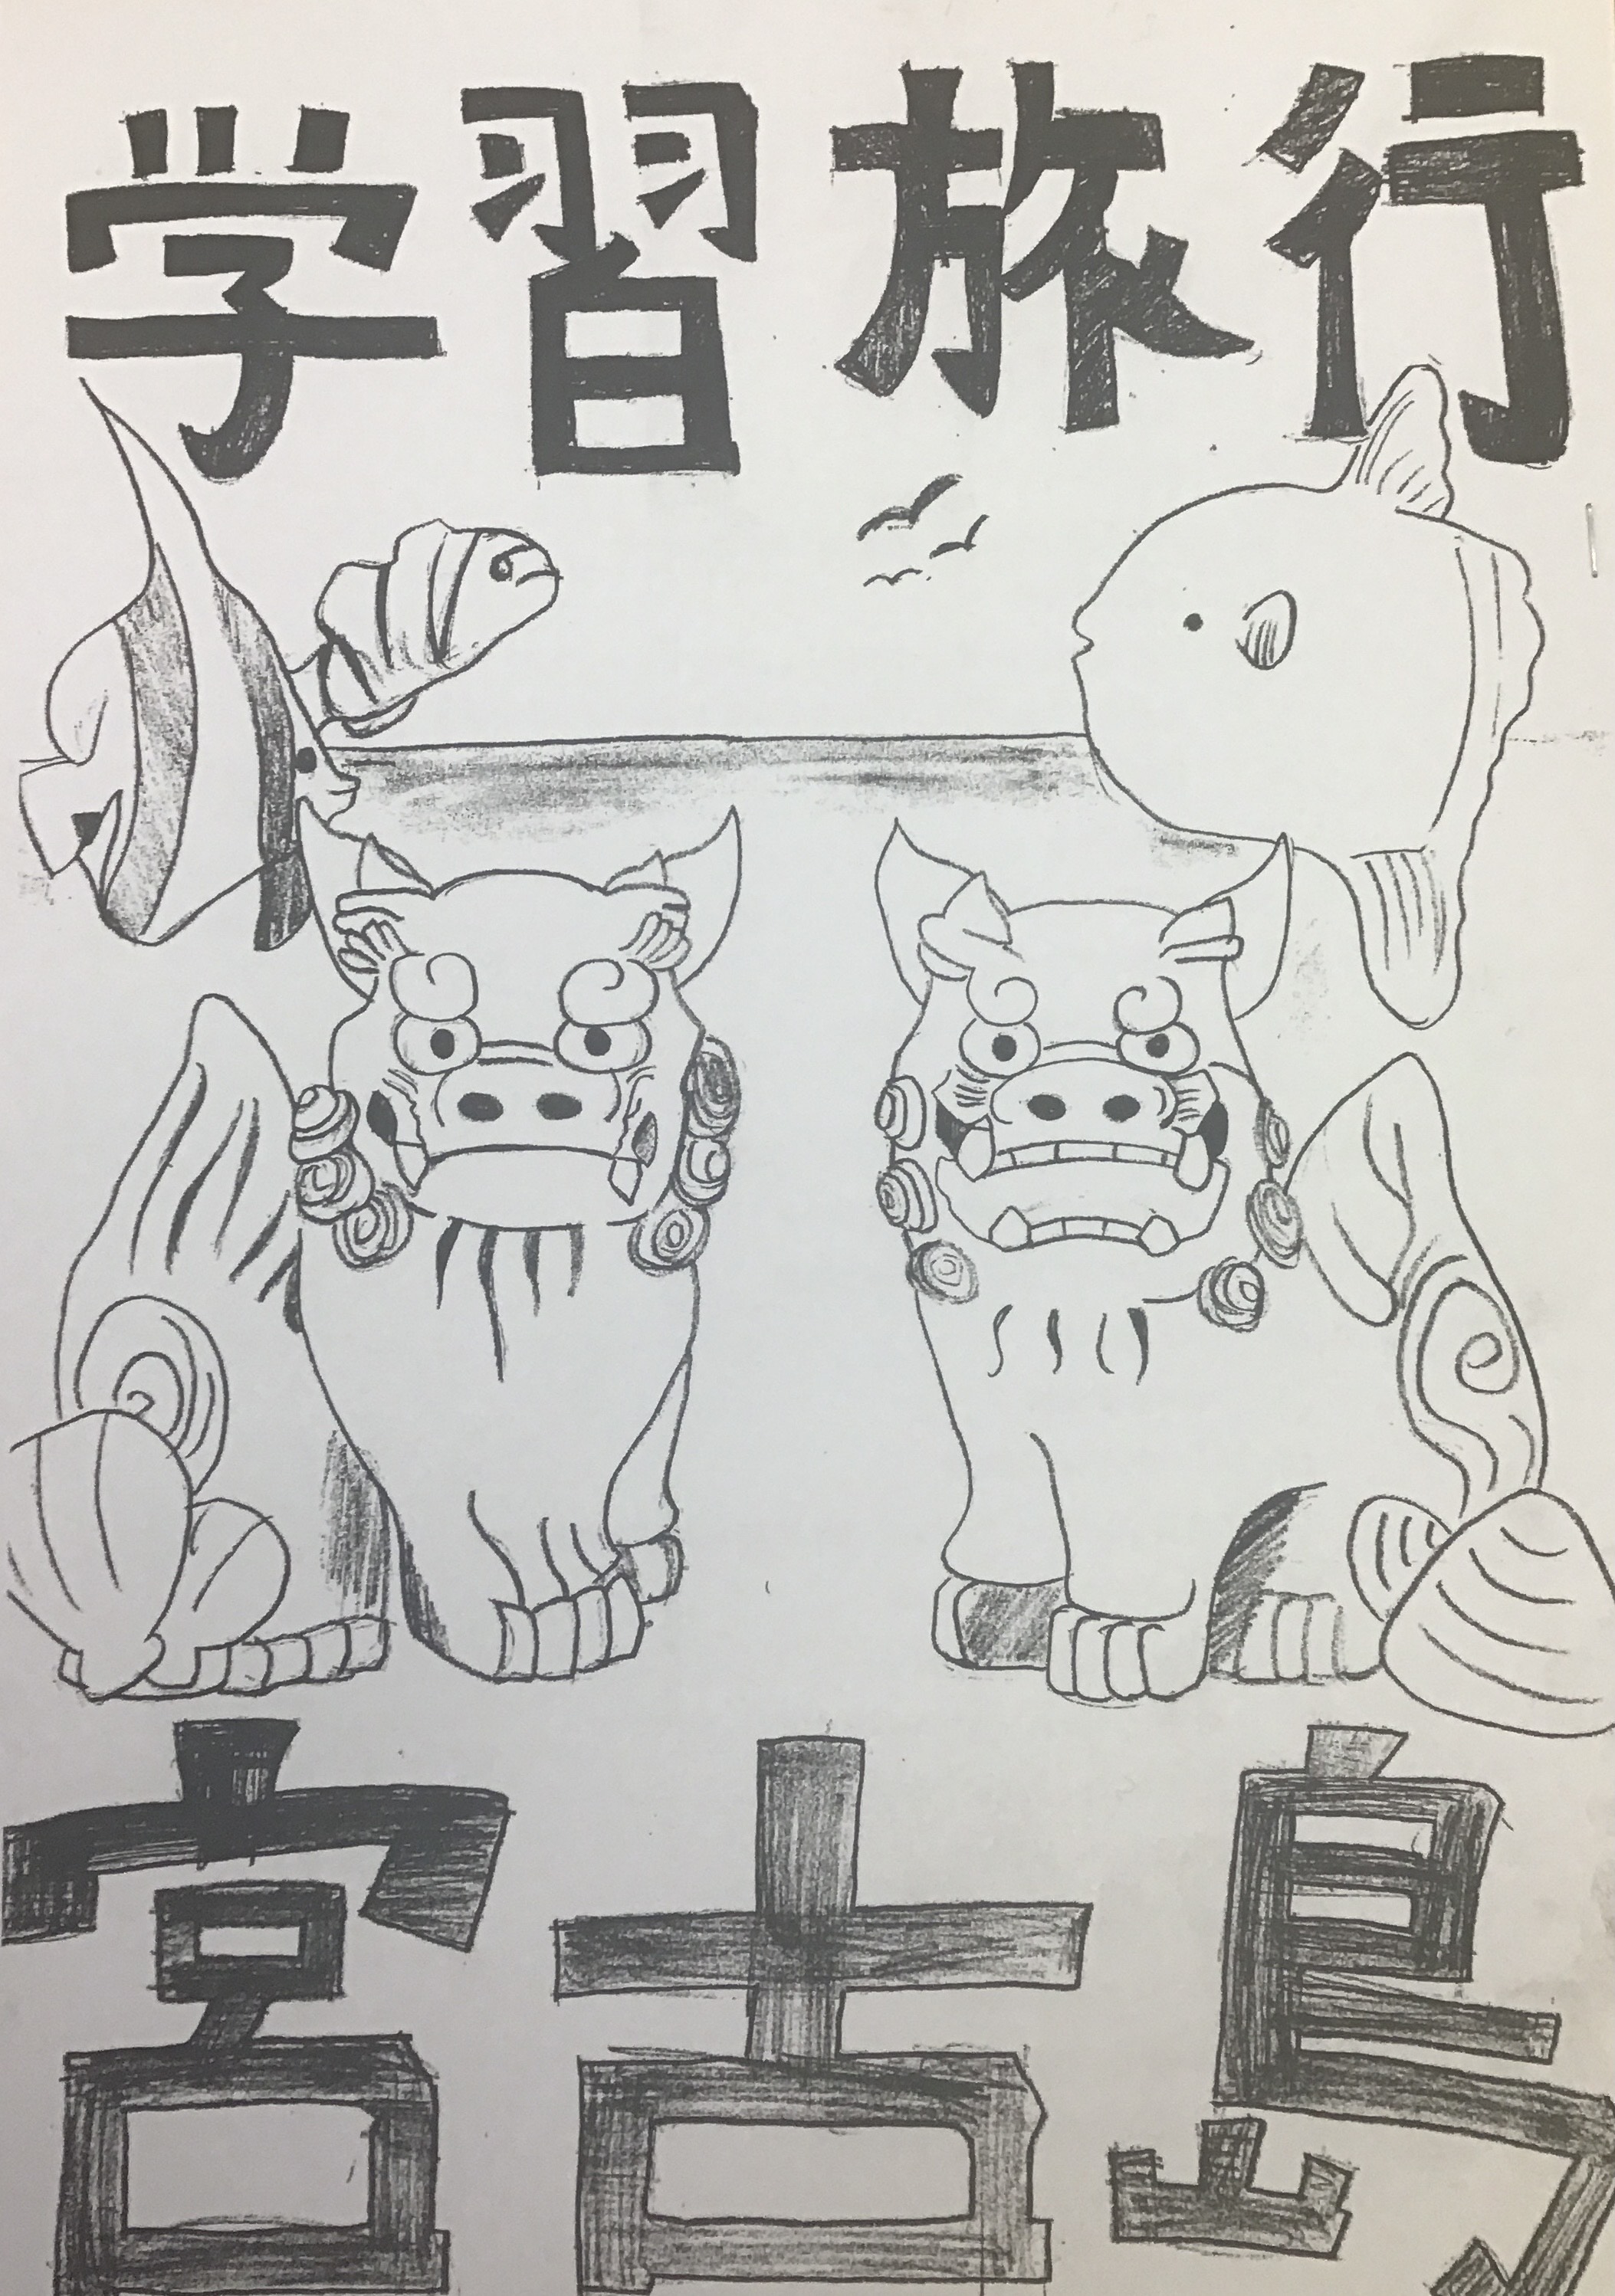 学習旅行
宮古島